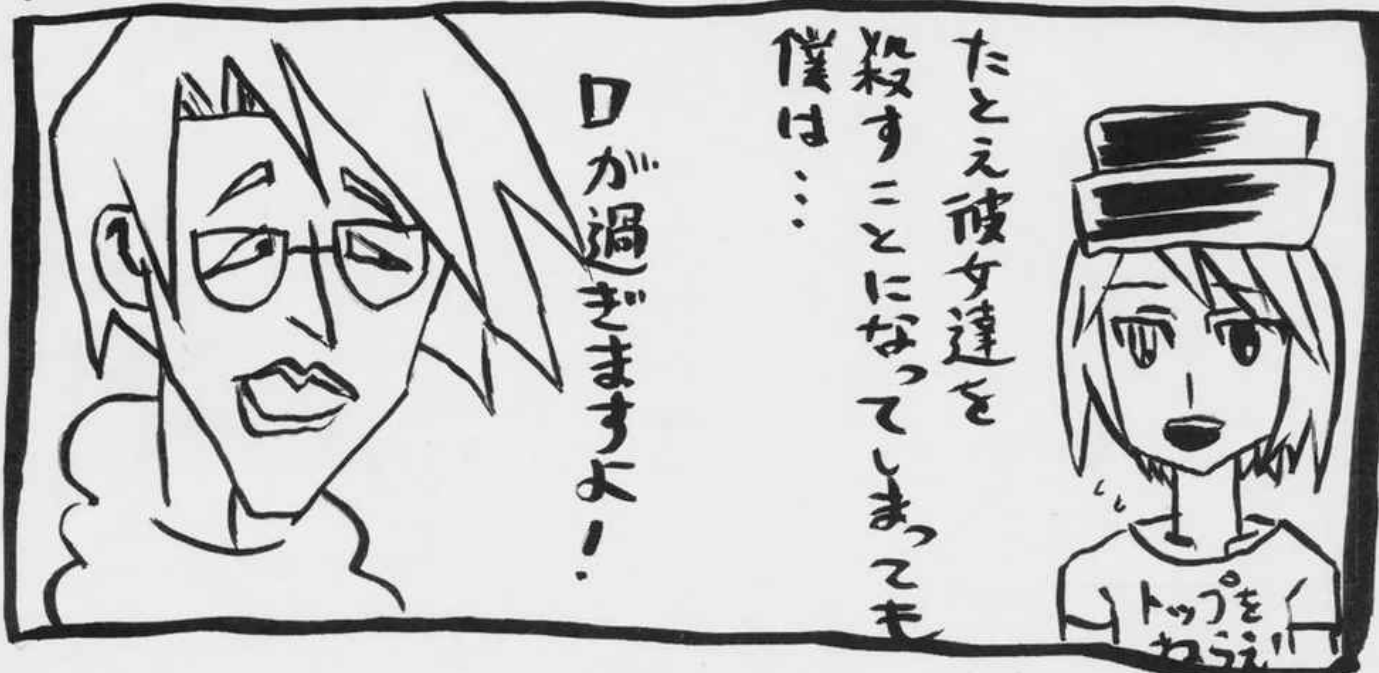 たとえ彼女達を
殺すことになってしまっても
僕は…
口が過ぎますよ!
トップを
ねらえ!!